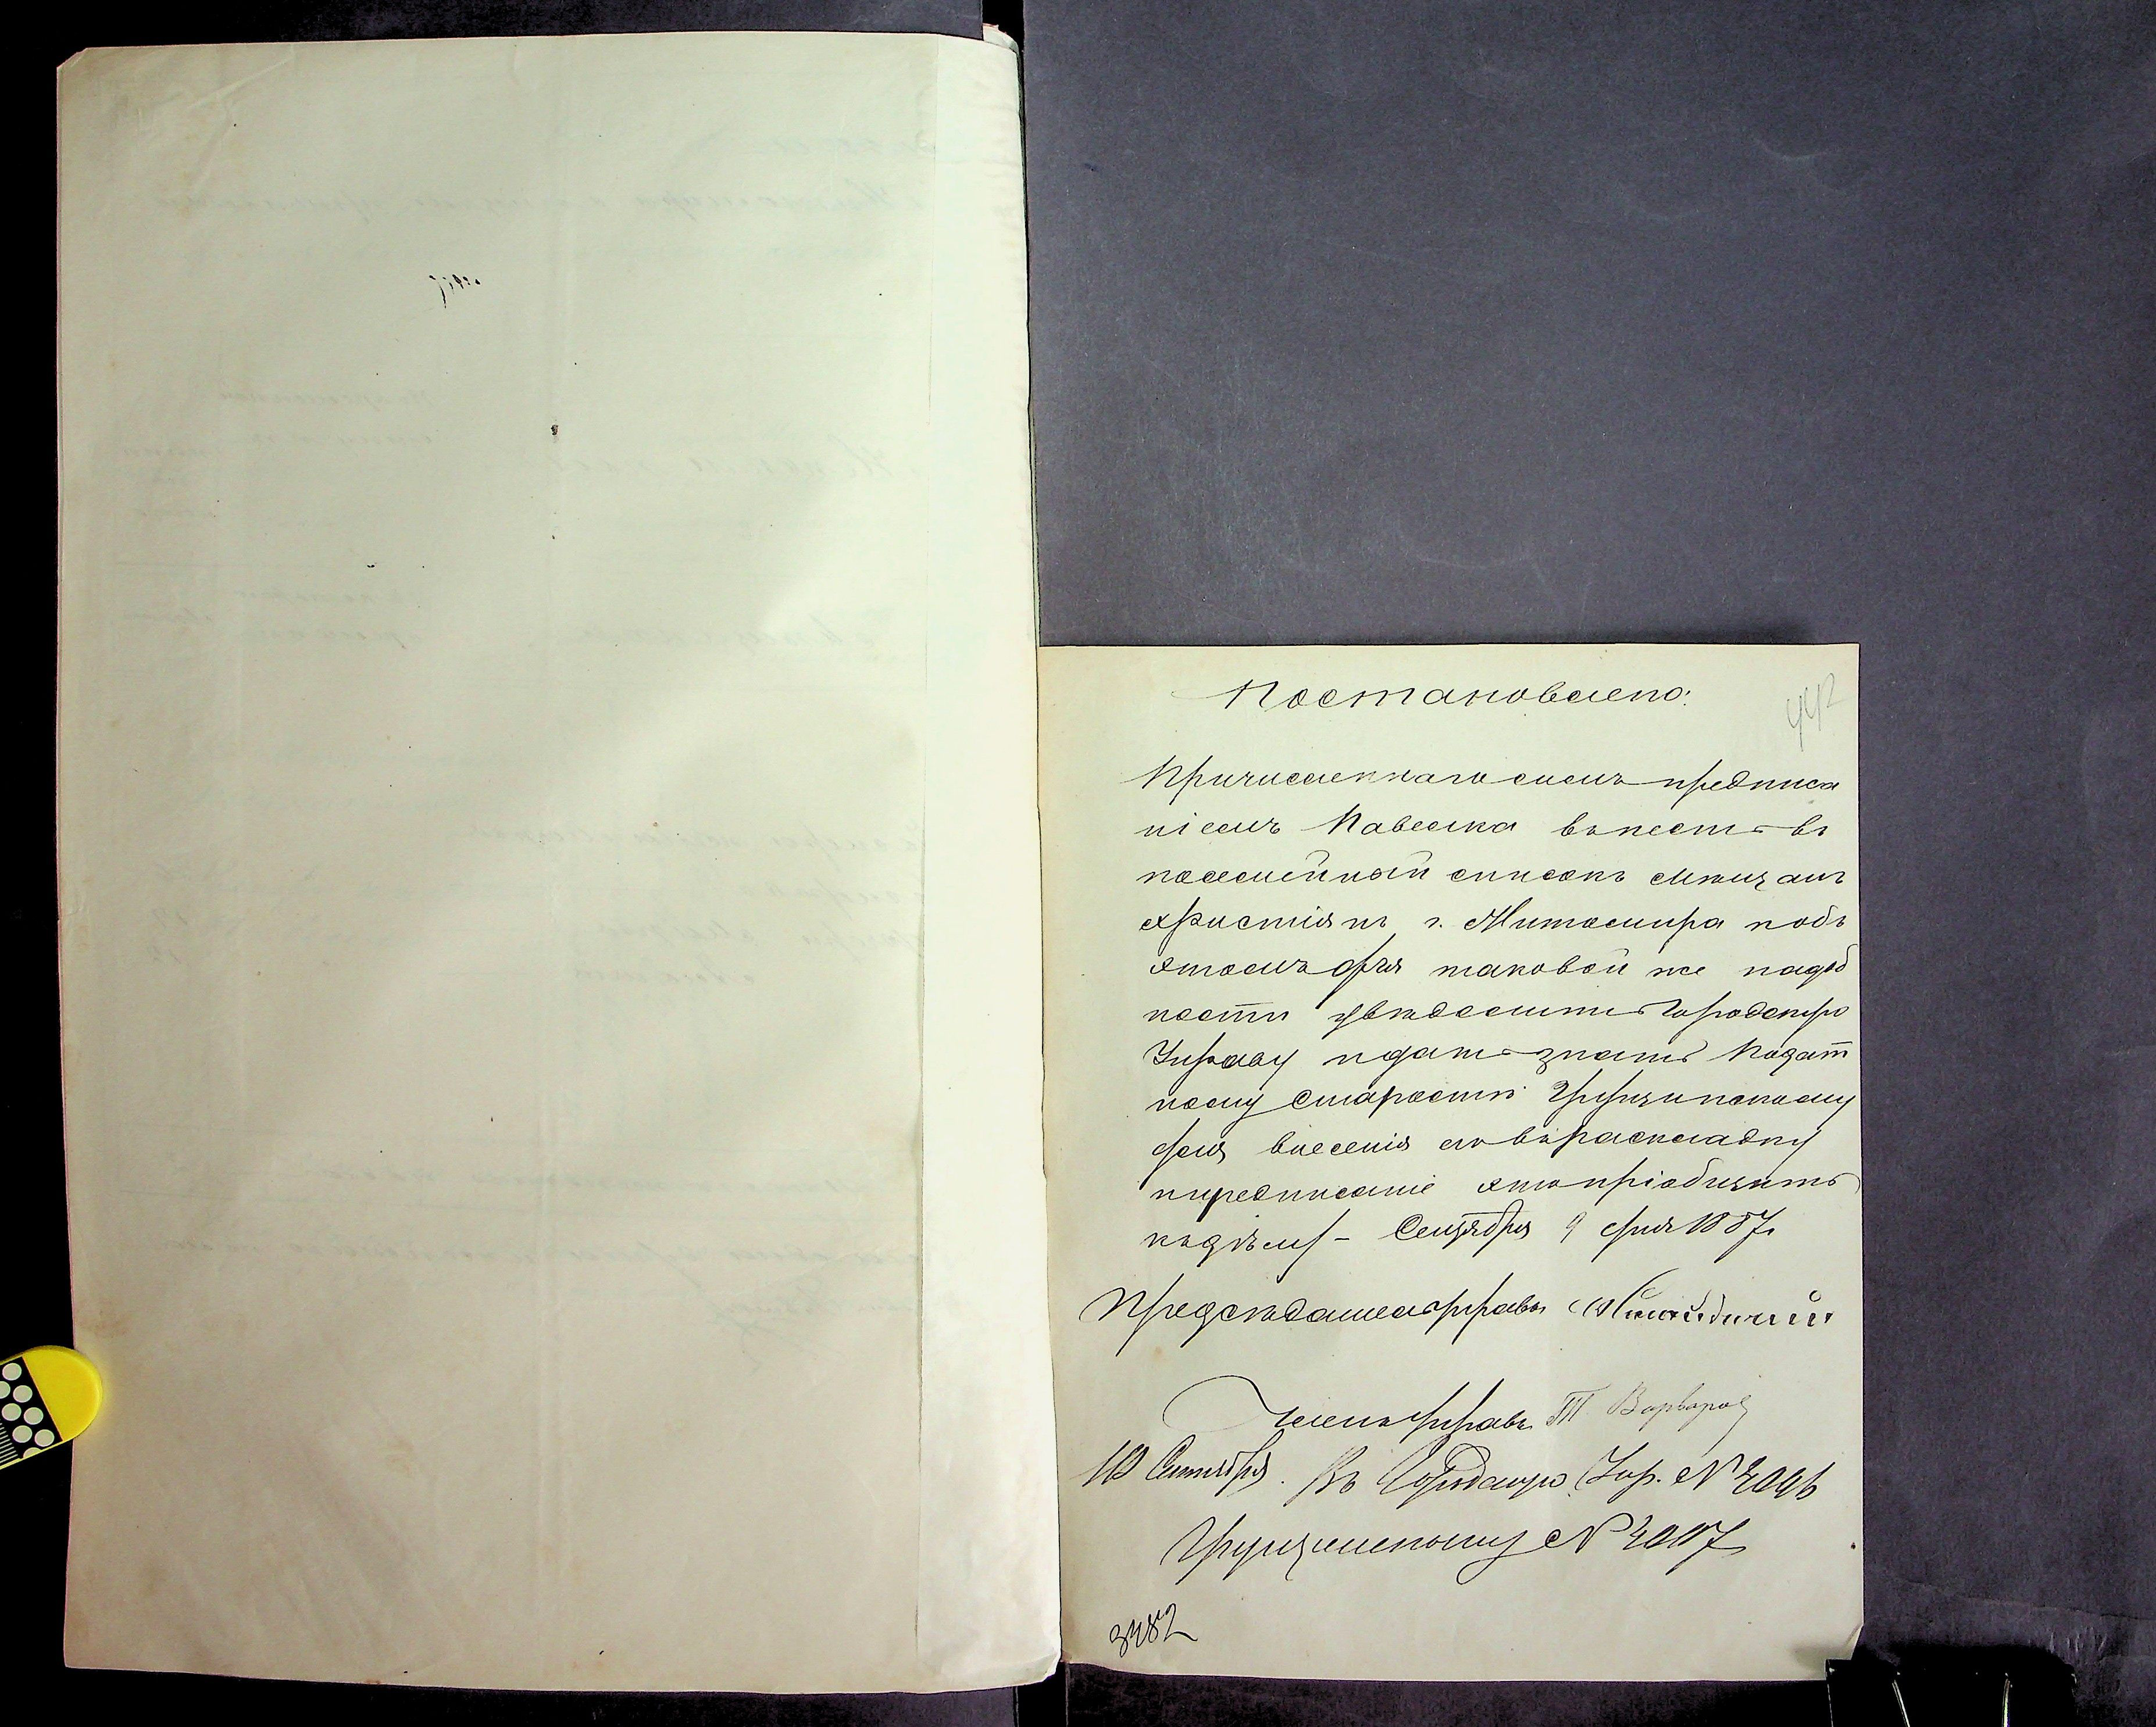 442
Постановлено:
Причисленнаго симъ предписа
ніемъ Павелка внести въ
посемейный списокъ мѣщанъ
христіянъ г. Житомира подъ
этомъ для таковой же надоб
ности увѣдомить Городскую
Управу и дать знать Подат
ному Старостѣ
для внесенія его въ раскладку
и предписаніе это пріобщить
къ дѣлу – Сентября 9 дня 1887
Предсѣдатель управы
Членъ управы Т Варваров
10 Сентября. Въ Городскую Упр. №
№
3482